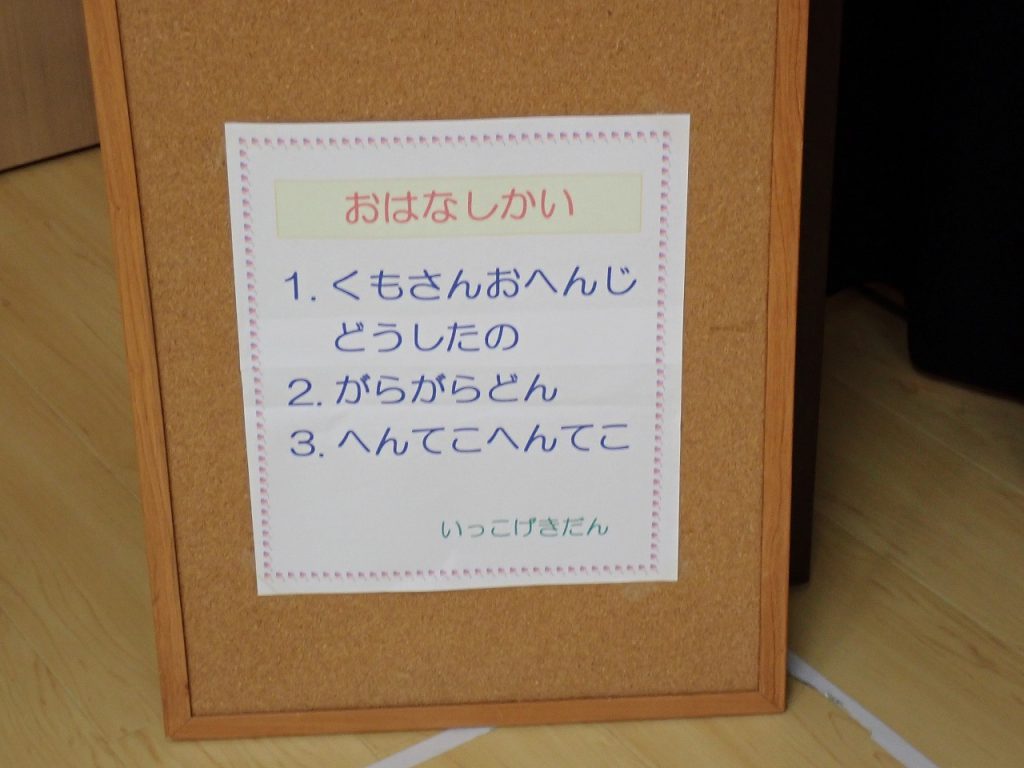 おはなしかい
1. くもさんおへんじ
どうしたの
2. がらがらどん
3. へんてこへんてこ
いっこげきだん